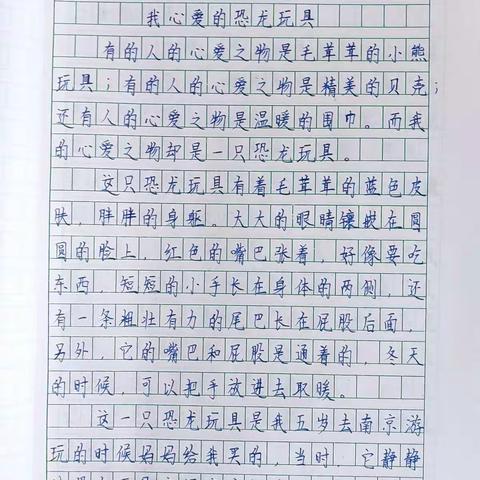 我心爱的恐龙玩具
有的人的心爱之物是毛茸茸的小熊
玩具；有的人的心爱之物是精美的贝壳；
还有人的心爱之物是温暖的围巾。而我
的心爱之物却是一只恐龙玩具。
这只恐龙玩具有着毛茸茸的蓝色皮
肤，胖胖的身躯。大大的眼睛镶嵌在圆
圆的脸上，红色的嘴巴张着，好像要吃
东西，短短的小手长在身体的两侧，还
有一条粗壮有力的尾巴长在屁股后面，
另外，它的嘴巴和屁股是通着的，冬天
的时候，可以把手放进去取暖。
这一只恐龙玩具是我五岁去南京游
玩的时候妈妈给我买的，当时，它静静